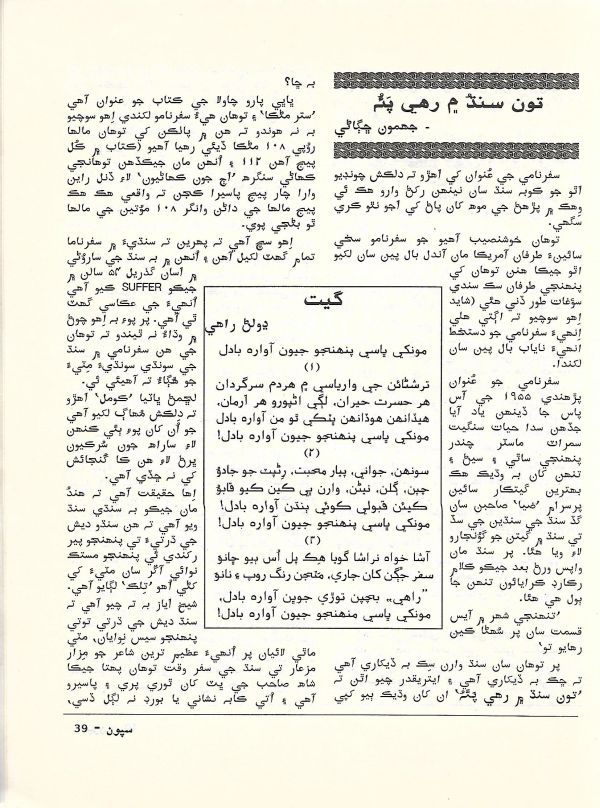 تون سنڌ ۾ رهي پئُہ
- جھمون ڇڳاڻي
سفرنامي جي عُنوان کي اهڙو تہ دلڪش چونڊيو
اٿو جو ڪوبہ سنڌ سان نينهن رکڻ وارو هڪ ئي
وِهڪ ۾ پڙهڻ جي موھ کان پاڻ کي آجو نٿو ڪري
سگهي.
توهان خوشنصيب آهيو جو سفرنامو سڪي
سائينءَ طرفان آمريڪا مان آندل بال پين سان لکيو
اٿو جيڪا هنن توهان کي
پنهنجي طرفان سڪ سندي
سؤغات طور ڏني هئي (شايد
اِهو سوچيو تہ اڳتي هلي
اِنهيءَ سفرنامي جو دستخط
انهيءَ ناياب بال پين سان
لکندا.
سفرنامي جو عُنوان
پڙهندي ١٩٥٥ جي آس
پاس جا ڏينهن ياد آيا
جڏهن سدا حيات سنگيت
سمراٽ ماسٽر چندر
پنهنجي ساٿي ۽ سيڻ ۽
تنهن کان بہ وڌيڪ هڪ
بهترين گيتڪار سائين
پرسرام 'ضيا' صاحبن سان
گڏ سنڌ جي سنڌين جي سڏ
تي سنڌ ۾ گيتن جو گونجارو
لاءِ ويا هئا. پر سنڌ مان
واپس ورڻ بعد جيڪو ڪلام
رڪارڊ ڪرايائون تنهن جا
ٻول هي هئا.
'تنهنجي شهر ۾ آيس
قسمت سان پر شھڻا کين
رهايو تو'
پر توهان سان سنڌ وارن سِڪ بہ ڏيکاري آهي
تہ ڇڪ بہ ڏيکاري آهي ۽ ايتريقدر چيو اٿن تہ
'تون سنڌ ۾ رهي پئُہ' ان کان وڌيڪ ٻيو کپي
بہ ڇا؟
ڀاڀي پارو چاولا جي ڪتاب جو عنوان آهي
'ستر مڻڪا' ۽ توهان هيءُ سفرنامو لکندي اِهو سوچيو
بہ نہ هوندو تہ هن ۾ پاٺڪن کي توهان مالها
روُپي ١٠٨ مڻڪا ڏيئي رهيا آهيو (ڪتاب ۾ ڪُل
پيج آهن ١١٢ ۽ اُنهن مان جيڪڏهن توهانجي
ڪهاڻي سنگرھ 'اڄ جون ڪهاڻيون' لاءِ ڏنل راين
وارا چار پيج پاسيرا ڪجن تہ واقعي هڪ هڪ
پيج مالها جي داڻن وانگر ١٠٨ موُتين جي مالها
ٿو بڻجي پوي.
اِهو سچ آهي تہ پهرين تہ سنڌيءَ ۾ سفرناما
تمام گهٽ لکيل آهن ۽ اُنهن ۾ بہ سنڌ جي ساروُڻي
۾ اسان گذريل ٥٣ سالن ۾
جيڪو SUFFER ڪيو آهي
اُنهيءَ جي عڪاسي گهٽ
ٿي آهي. پر پوءِ بہ اِهو چوڻ
۾ وڌاءُ نہ ٿيندو تہ توهان
جي هن سفرنامي ۾ سنڌ
جي سونڌي سونڌيءَ مِٽيءَ
جو هُڳاءُ تہ آهيئي ئي.
لڇمڻ ڀاٽيا 'ڪومل' اهڙو
تہ دلڪش مُهاڳ لکيو آهي
جو اُن کان پوءِ ٻئي ڪنهن
لاءِ ساراھ جون سُرڪيون
ڀرڻ لاءِ هن ڪا گُنجائش
ئي نہ ڇڏي آهي.
اِها حقيقت آهي تہ هنڌ
مان جيڪو بہ سنڌي سنڌ
ويو آهي تہ هن سنڌو ديش
جي ڌرتيءَ تي پنهنجو پير
رکندي ئي پنهنجو مستڪ
نوائي آڱر سان مٽيءَ کي
کڻي اهو 'تِلڪ' لڳايو آهي.
شيخ اياز بہ تہ چيو آهي تہ
سنڌ ديش جي ڌرتي توتي
پنهنجو سيس نوايان، مٽي
ماٿي لائيان پر اُنهيءَ عظيم ترين شاعر جو مزار
مزعار تي سنڌ جي سفر وقت توهان پهتا جيڪا
شاھ صاحب جي ڀٽ کان ٿوري پري ۽ پاسيرو
آهي ۽ اُتي ڪابہ نشاني يا بورڊ نہ لڳل ڏسي،
گيت
ڍولڻ راهي
مونکي ڀاسي پنهنجو جيون آواره بادل
(١)
ترشڻائن جي وارياسي ۾ هردم سرگردان
هر حسرت حيران، لڳي اڻپورو هر آرمان،
هيڏانهن هوڏانهن ڀٽڪي ٿو من آواره بادل!
مونکي ڀاسي پنهنجو جيون آواره بادل!
(٢)
سونهن، جواني، پيار محبت، رِڻپٽ جو جادوُ
چپن، ڳلن، نيڻن، وارن ٻي ڪين ڪيو قابوُ
ڪيئن قبولي ڪوئي ٻنڌن آواره بادل!
مونکي ڀاسي پنهنجو جيون آواره بادل!
(٣)
آشا خواه نراشا گويا هِڪ پل اُس ٻيو ڇانو
سفر جڳن کان جاري، مٽجن رنگ روپ ۽ نانو
"راهي،، بچپن توڙي جوڀن آواره بادل!
مونکي ڀاسي منهنجو جيون آواره بادل!
سپون - 39